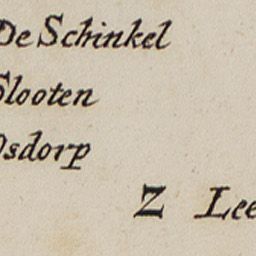 De Schinkel
Slooten
Osdorp
Z Lee